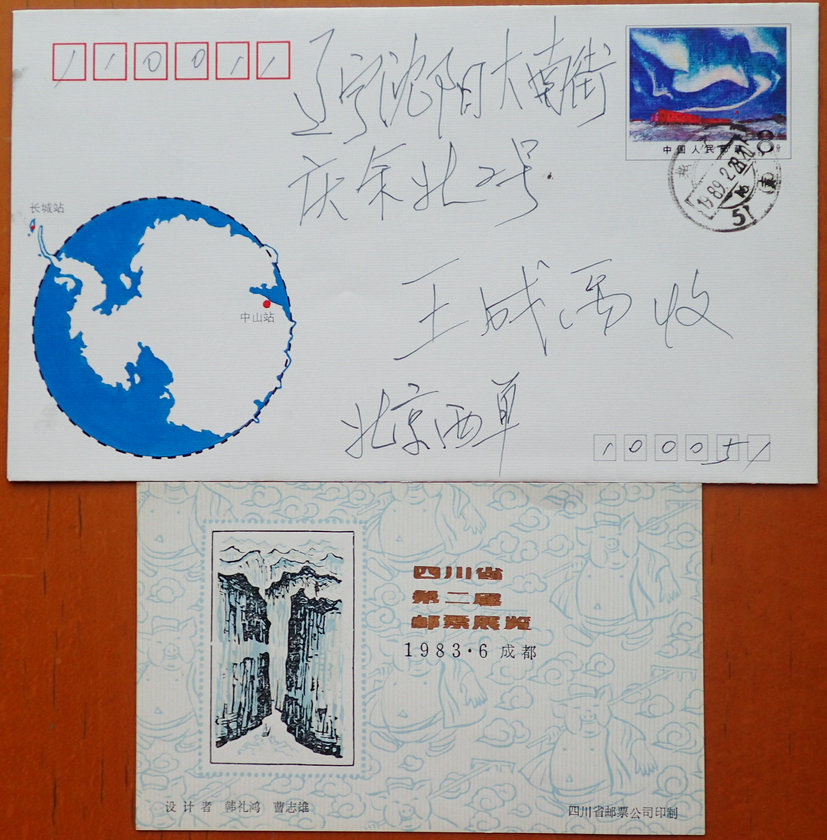 110011
辽宁沈阳大南街
中国人民邮政
庆余北2号
1989.2.28.20
51
长城站
中山站
王成禹收
北京西单
100051
四川省
第二届
邮票展览
1983·6 成都
设计者 韩礼鸿 曹志雄
四川省邮票公司印制